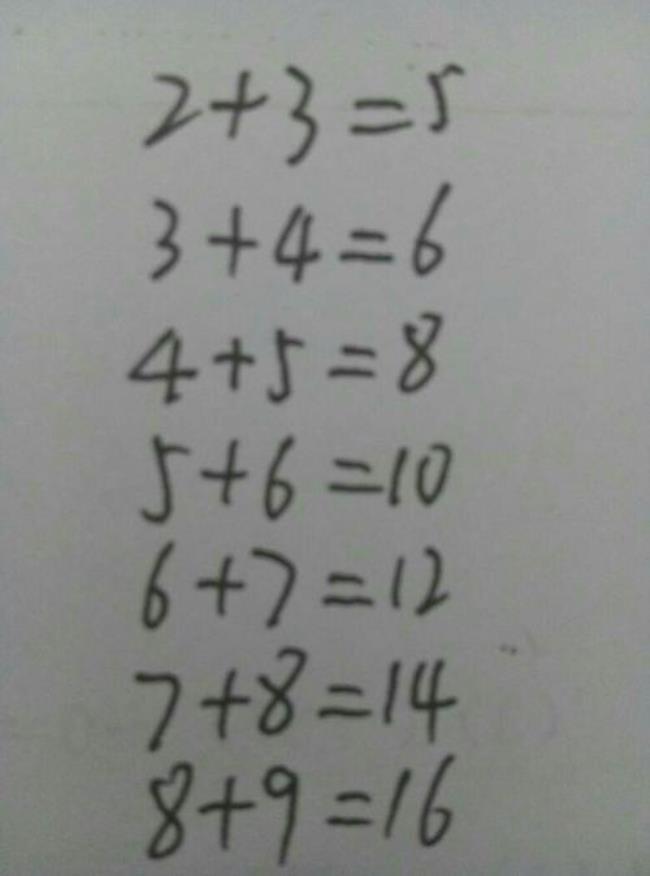 2+3=5
3+4=6
4+5=8
5+6=10
6+7=12
7+8=14
8+9=16